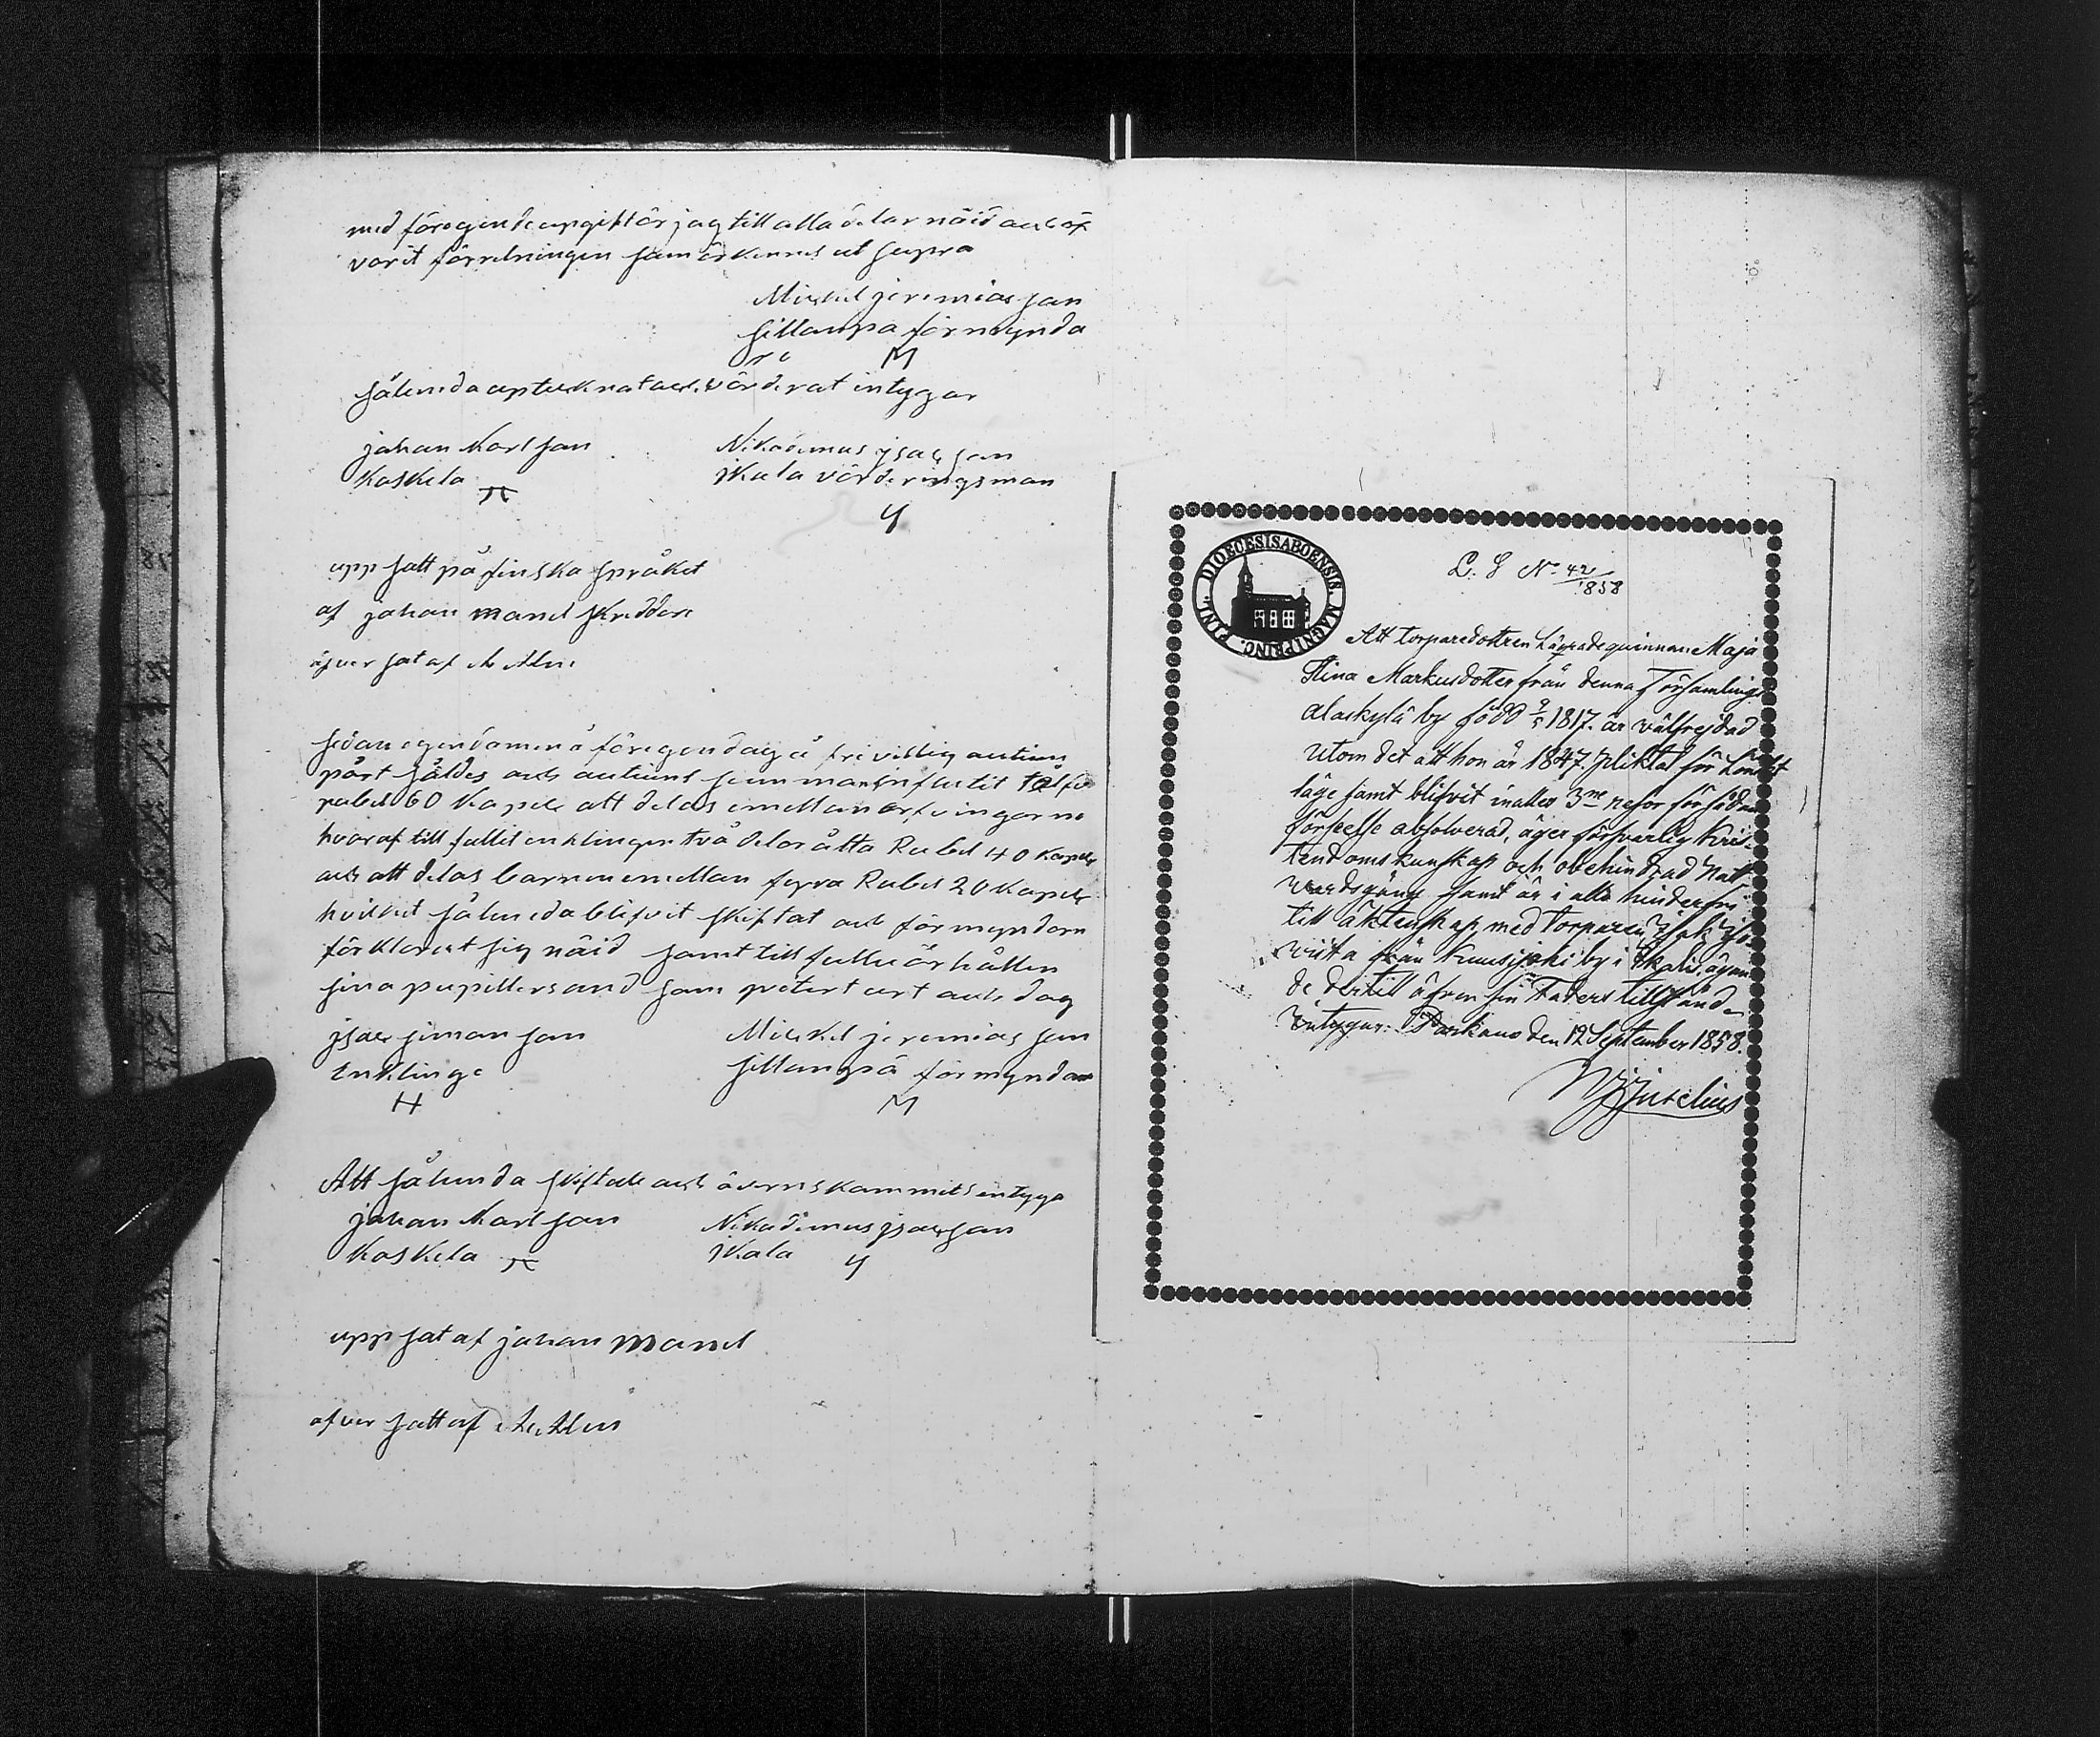 med föregende upgift är jag till alla delar nöid ach äf
varit förretningen som erkennes ut supra
Mickel jeremias san
sillanpä förmynda
re M
sålunda uptecknat ach värderat intygar
johan Karl san
Koskela
Nikodemus jsac san
jkala värderingsman
upp satt på finska språket
af johan Manel skreddare
äfver sat af A Alin
sedan egendomen å föregen dag å frivillig auction
pört såldes ach auctions summan influtit tålf
rubel 60 Kapek att delas emellan arfvingarne
hvaraf till fallit enklingen två delar åtta Rubel 40 Kapek
ach att delas barnen emellan fyra Rubel 20 Kapek
hvilket sålunda blifvit skiftat ach förmyndarn
förklarat sig nöid samt till fullu ärhållen
sina pupillers and som qvitert art ach dag
jsac simon san
Enklinge
H
Mickel jeremias san
sillanpä förmyndare
M
Att sålunda skiftade ach äverens kammits intyga
johan Karl san
Koskela
Nikodemus jsac san
jkala
upp sat af johan Manel
äfver satt af A. Alin
DIOECESIS ABOENSIS MAGNI PRINC. FINL.
L. S. No 42/1858
Att torparedottren Lägradeqwinnan Maja
Stina Markusdotter från denna Församlings
alaskylä by född 9/5 1817. är wälfrejdad
utom det att hon år 1847. pliktat för Lönskt
läge samt blifvit inalles 3ne resor för sådan
förseelse absolverad, äger försvarlig Kris-
tendomskunskap och obehindrad Natt-
wardsgång samt är i allo hinderfri
till äktenskap med torparen Isak Iso
wiita från Kuusijoki by i Ikalis, ägan
de dertill äfven sin Faders tillstånd.
Intygar: Parkano den 12 September 1858.
Juselius